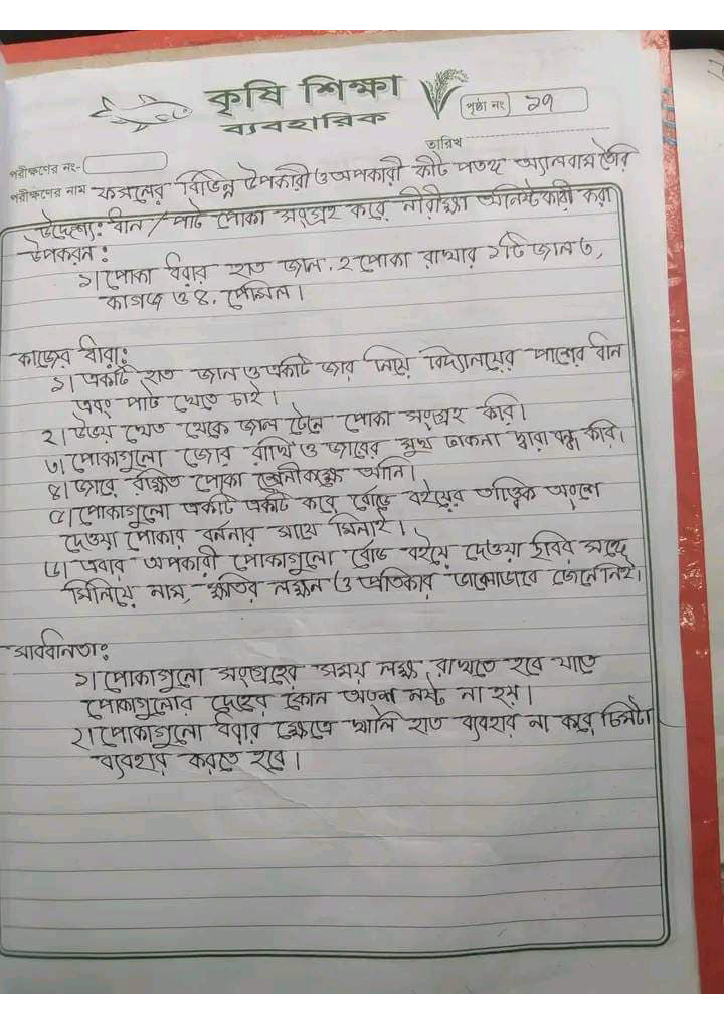 কৃষি শিক্ষা
ব্যবহারিক
পৃষ্ঠা নং ১৭
তারিখ
পরীক্ষণের নং-
পরীক্ষণের নাম ফসলের বিভিন্ন উপকারী ও অপকারী কীট পতঙ্গ অ্যালবাম তৈরি
উদ্দেশ্য: ধান / পাট পোকা সংগ্রহ করে নীরীক্ষা অনিষ্টকারী করা
উপকরন:
১। পোকা ধরার হাত জাল. ২ পোকা রাখার ১টি জাল ৩,
কাগজ ও ৪. পেন্সিল।
কাজের ধারা:
১। একটি হাত জাল ও একটি জার নিয়ে বিদ্যালয়ের পাশের ধান
এবং পাট খেতে যাই।
২। উভয় খেত থেকে জাল টেনে পোকা সংগ্রহ করি।
৩। পোকাগুলো জোর রাখি ও জারের মুখ ঢাকনা দ্বারা বন্ধ করি।
৪। জারে রক্ষিত পোকা শ্রেনীকক্ষে আনি।
৫। পোকাগুলো একটি একটি করে বোর্ড বইয়ের তাত্ত্বিক অংশে
দেওয়া পোকার বর্ননার সাথে মিলাই।
৬। এবার অপকারী পোকাগুলো বোর্ড বইয়ে দেওয়া ছবির সঙ্গে
মিলিয়ে নাম, ক্ষতির লক্ষন ও প্রতিকার ভালোভাবে জেনে নিই।
সাবধানতা:
১। পোকাগুলো সংগ্রহের সময় লক্ষ রাখতে হবে যাতে
পোকাগুলোর দেহের কোন অংশ নষ্ট না হয়।
২। পোকাগুলো ধরার ক্ষেত্রে খালি হাত ব্যবহার না করে চিমটা
ব্যবহার করতে হবে।